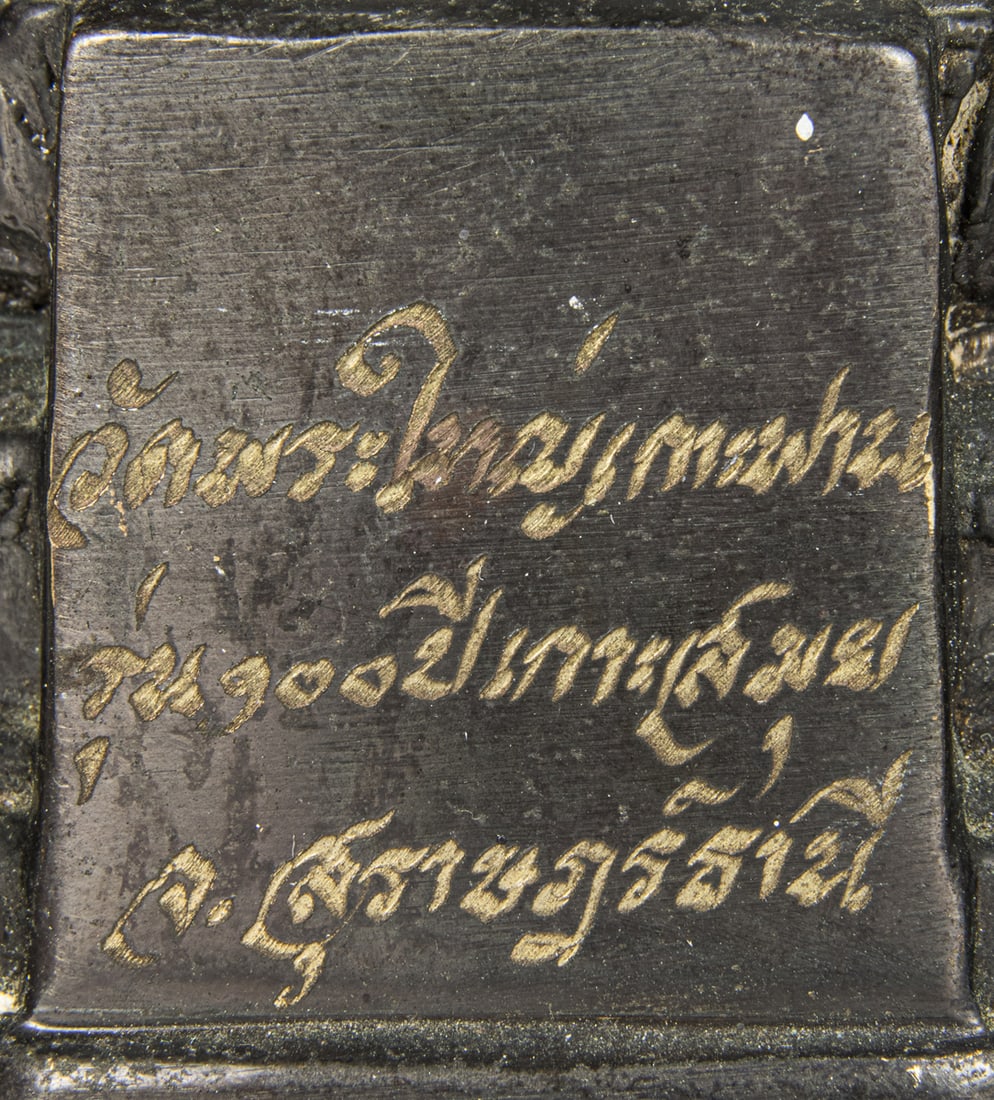 วัดพระใหญ่เกาะฟาน
รุ่น๑๐๐ปีเกาะสมุย
จ.สุราษฎร์ธานี